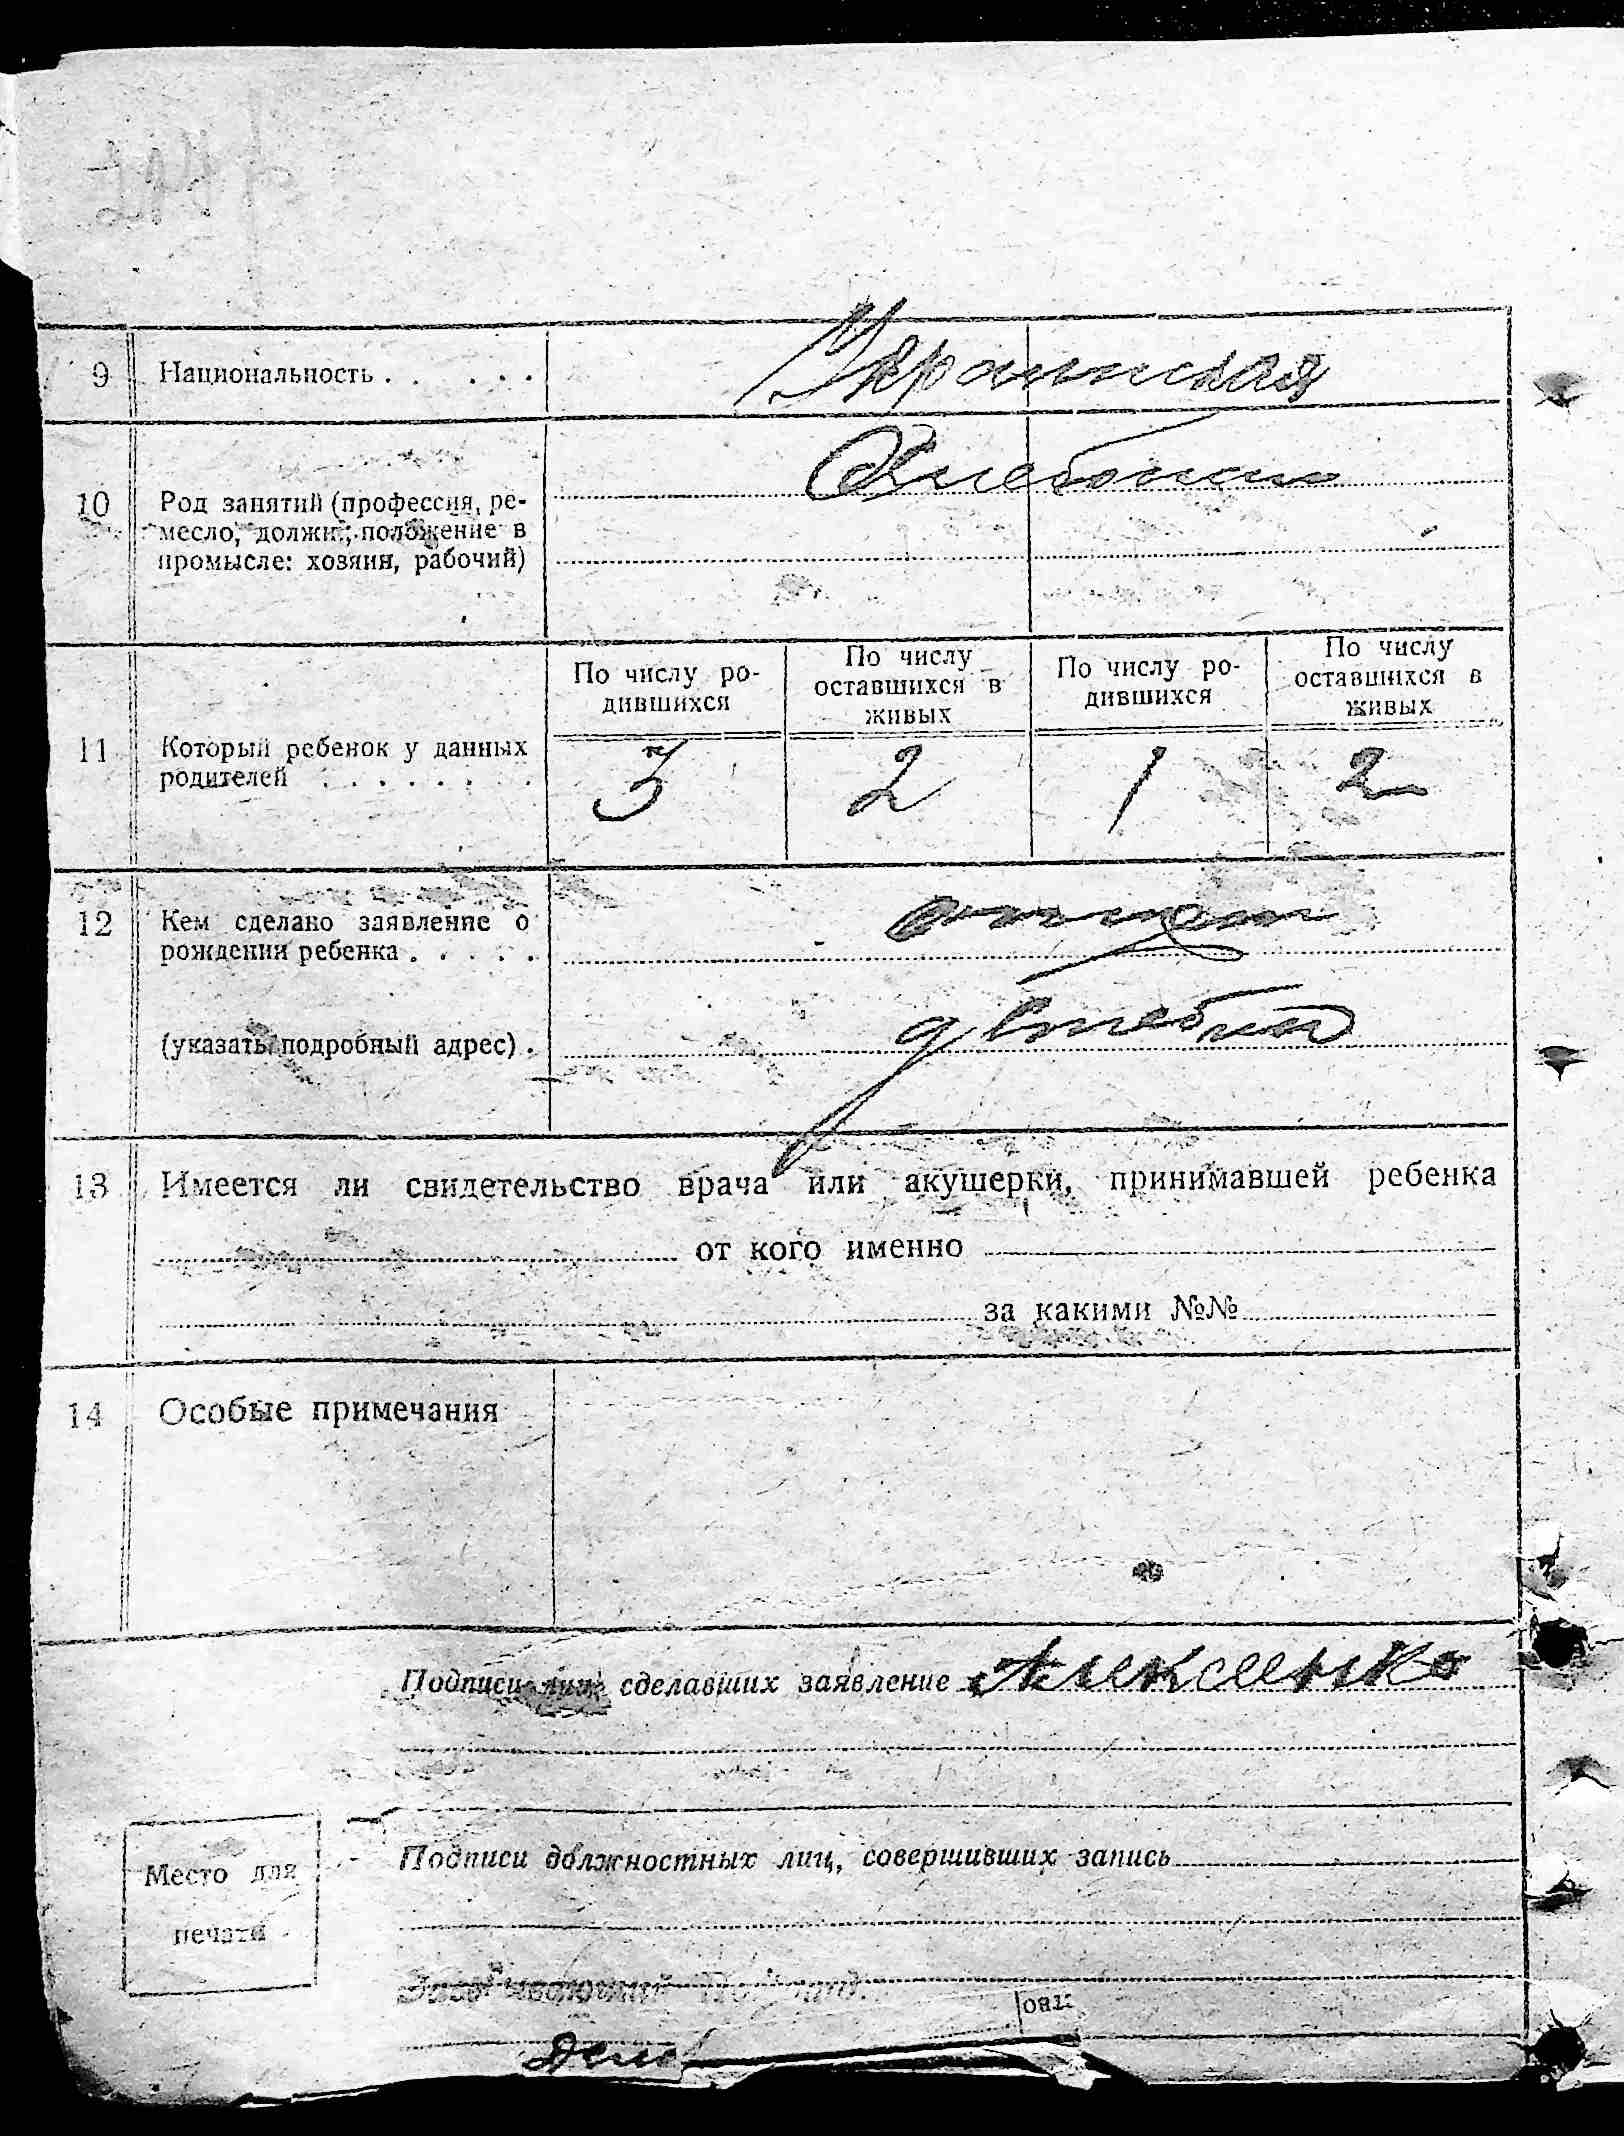 9 Национальность . . . . . . Украинская
10 Род занятий (профессия, ре-
месло, должн.; положение в
промысле: хозяин, рабочий)
По числу ро-
дившихся
По числу
оставшихся в
живых
По числу ро-
дившихся
По числу
оставшихся в
живых
11 Который ребенок у данных
родителей . . . . . . . .
3 2 1 2
12 Кем сделано заявление о
рождении ребенка . . . . . отцем
(указать подробный адрес) .
13 Имеется ли свидетельство врача или акушерки, принимавшей ребенка
от кого именно
за какими №№
14 Особые примечания
Подписи лиц, сделавших заявление Алексенко
Подписи должностных лиц, совершивших запись
Место для
печати